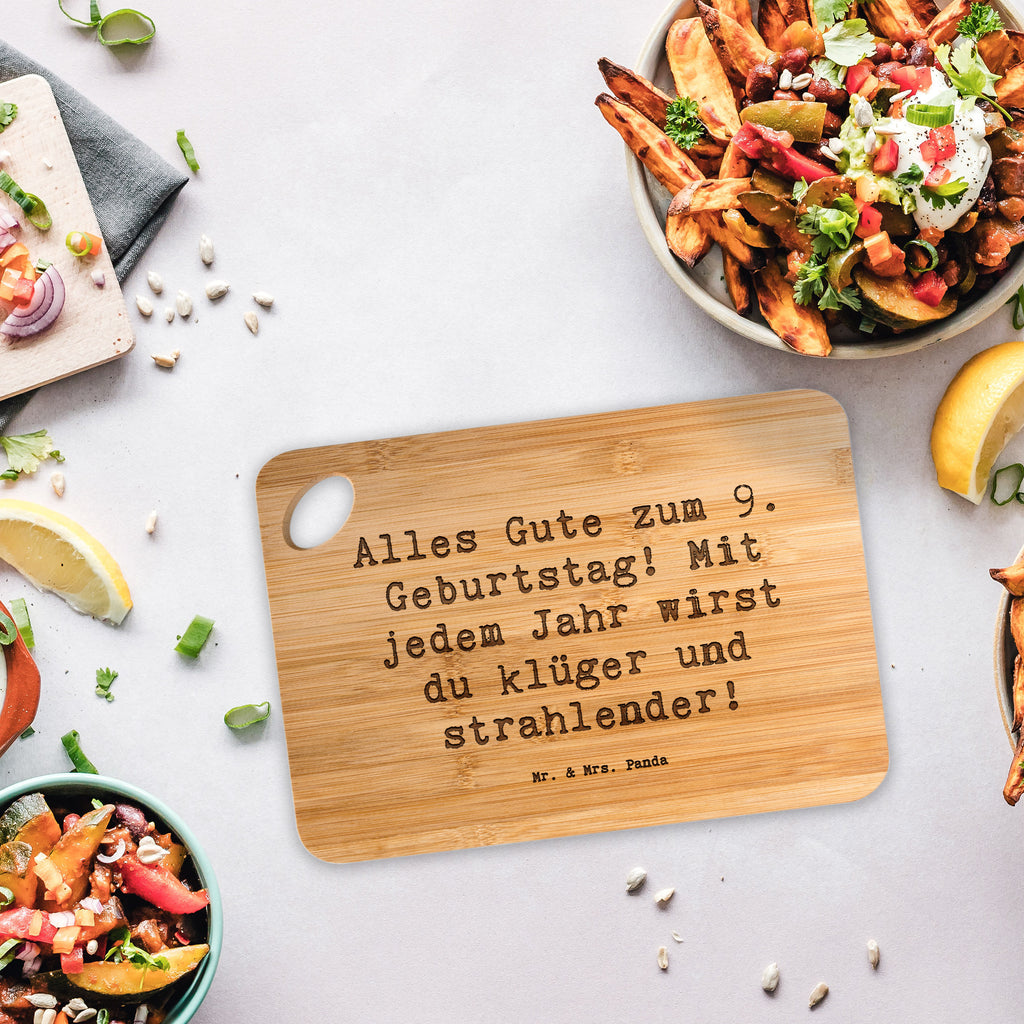 Alles Gute zum 9.
Geburtstag! Mit
jedem Jahr wirst
du klüger und
strahlender!
Mr. & Mrs. Panda